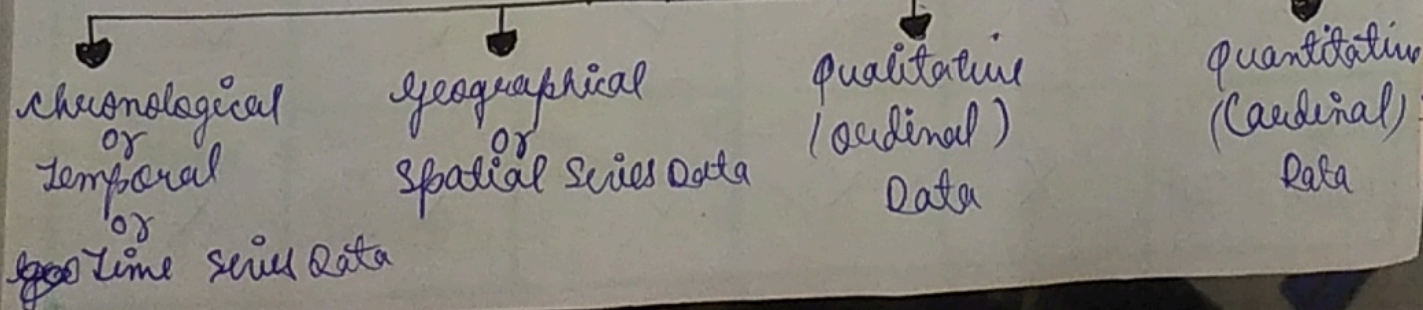 Chronological
or
Temporal
or
Time Series Data
Geographical
or
Spatial Series Data
Qualitative
(ordinal)
Data
Quantitative
(Cardinal)
Data